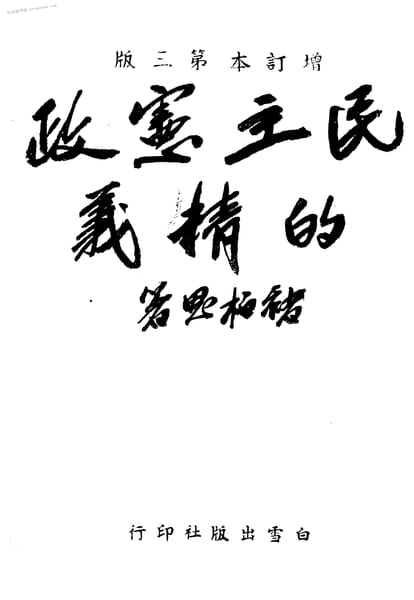 增訂本第三版
民主憲政
的精義
褚柏思著
白雪出版社印行